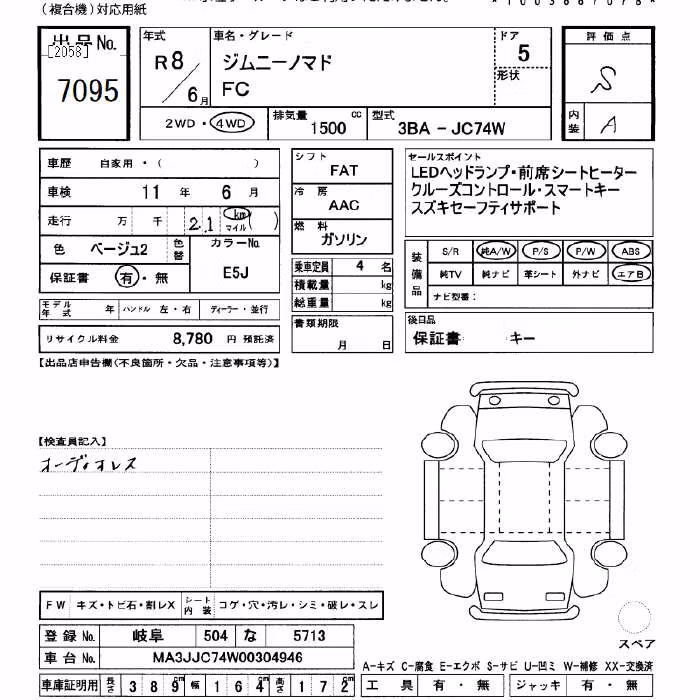 (複合機)対応用紙
出品No.
[2058]
7095
年式 R8/6月
車名・グレード
ジムニーノマド
FC
ドア 5
形状
評価点
S
内装 A
2WD・4WD
排気量 1500 cc
型式 3BA - JC74W
車歴 自家用・( )
車検 11年 6月
走行 万 千 2.1 km マイル( )
色 ベージュ2 色替
カラーNo. E5J
保証書 有・無
モデル年式 年 ハンドル 左・右 ディーラー・並行
リサイクル料金 8,780 円 預託済
シフト
FAT
冷房
AAC
燃料
ガソリン
乗車定員 4 名
積載量 kg
総重量 kg
書類期限
月 日
セールスポイント
LEDヘッドランプ・前席シートヒーター
クルーズコントロール・スマートキー
スズキセーフティサポート
装備品
S/R 純A/W P/S P/W ABS
純TV 純ナビ 革シート 外ナビ エアB
ナビ型番:
後日品
保証書 キー
【出品店申告欄(不良箇所・欠品・注意事項等)】
【検査員記入】
オーディオレス
FW キズ・トビ石・割レX シート内装 コゲ・穴・汚レ・シミ・破レ・スレ
登録No. 岐阜 504 な 5713
車台No. MA3JJC74W00304946
車庫証明用 長さ 389cm 幅 164cm 高さ 172cm
スペア
A-キズ C-腐食 E-エクボ S-サビ U-凹ミ W-補修 XX-交換済
工具 有・無 ジャッキ 有・無